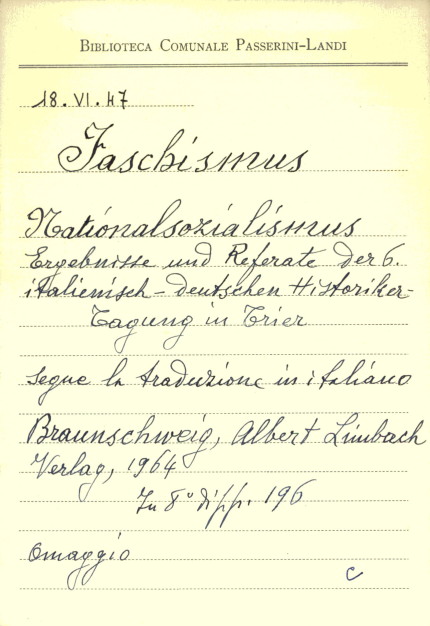 BIBLIOTECA COMUNALE PASSERINI-LANDI
18.VI.47
Faschismus
Nationalsozialismus
Ergebnisse und Referate der 6.
italienisch-deutschen Historiker-
Tagung in Trier
segue la traduzione in italiano
Braunschweig, Albert Limbach
Verlag, 1964
In 8° di pp. 196
Omaggio
C